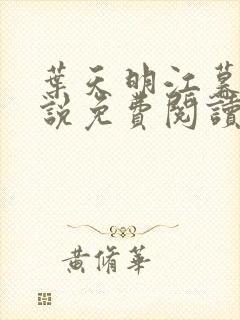 葉天明江慕
說免費閱讀
黃脩華